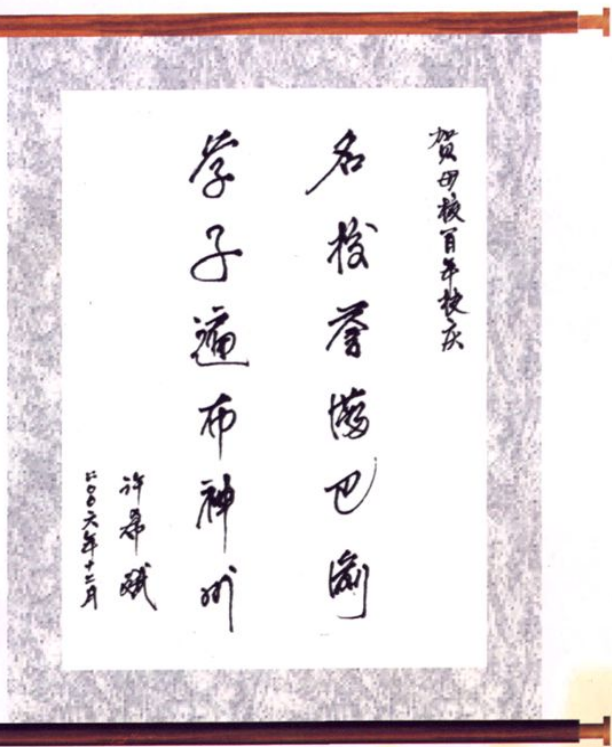 贺母校百年校庆
名校誉满巴渝
学子遍布神州
许霖斌
二〇〇六年十二月